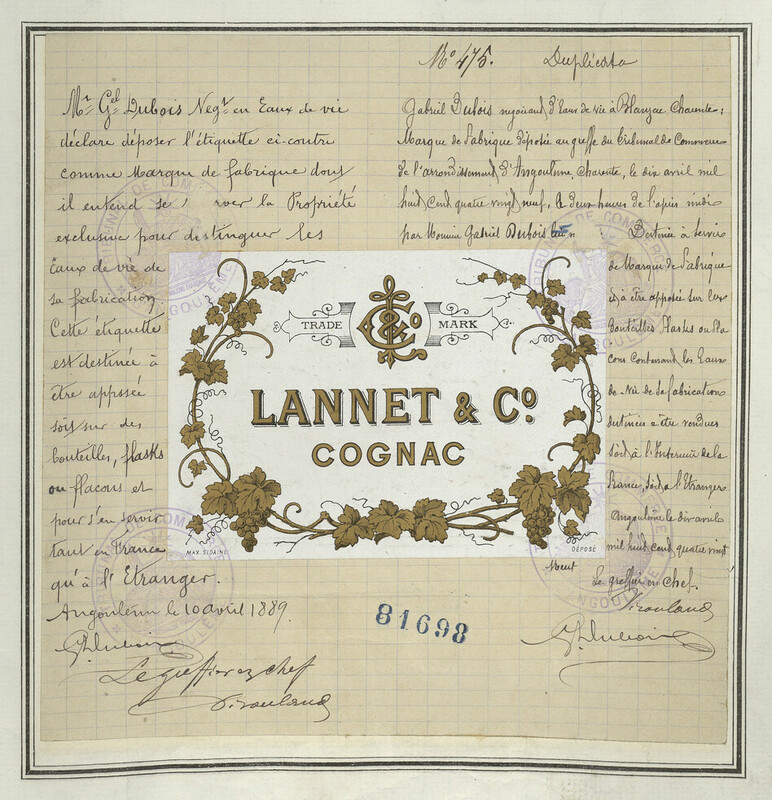 No 475. Duplicata
Mr Gel Dubois Negt en Eaux de vie
déclare déposer l'étiquette ci-contre
comme Marque de fabrique dont
il entend se rver la Propriété
exclusive pour distinguer les
Eaux de vie de
sa fabrication.
Cette étiquette
est destinée à
être apposée
soit sur des
bouteilles, flasks
ou flacons et
pour s'en servir
tant en France
qu'à l'Etranger.
Angoulême le 10 avril 1889.
G Dubois
Le greffier en chef
Gabriel Dubois négociant d'Eaux de vie à Blanzac Charente:
Marque de Fabrique déposée au greffe du Tribunal de Commerce
de l'arrondissement d'Angoulême, Charente, le dix avril mil
huit cent quatre vingt neuf, à deux heures de l'après midi
par Monsieur Gabriel Dubois
Destinée à servir
de Marque de Fabrique
et à être apposée sur les
Bouteilles Flasks ou Fla
cons contenant les Eaux
de Vie de sa fabrication
destinées à être vendues
soit à l'Intérieur de la
France, soit à l'Etranger
Angoulême le dix avril
mil huit cent quatre vingt
neuf
Le greffier en chef.
G Dubois
TRADE MARK
& Co
LANNET & Co.
COGNAC
MAX. SIDAINE
DÉPOSÉ
81698
TRIBUNAL DE COMMERCE
ANGOULÊME